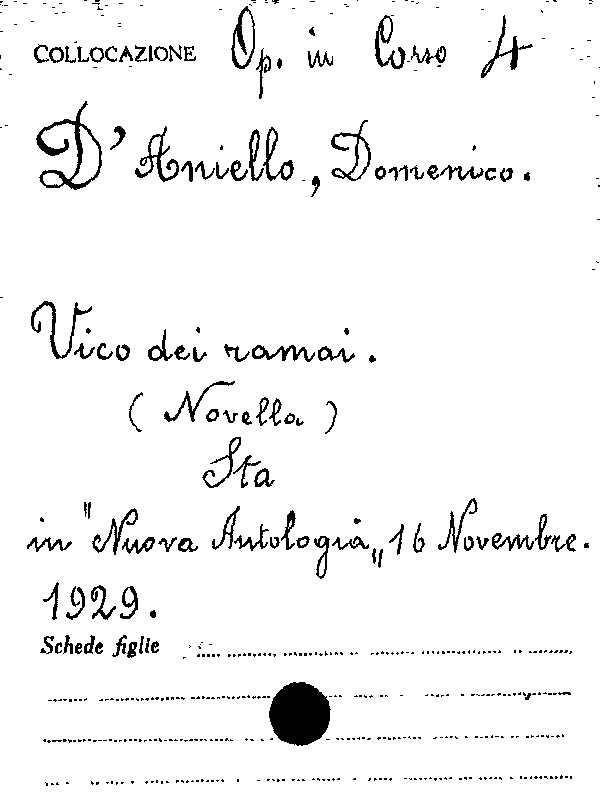 COLLOCAZIONE Op. in Corso 4
D'Aniello, Domenico.
Vico dei ramai.
( Novella )
Sta
in "Nuova Antologia„ 16 Novembre.
1929.
Schede figlie